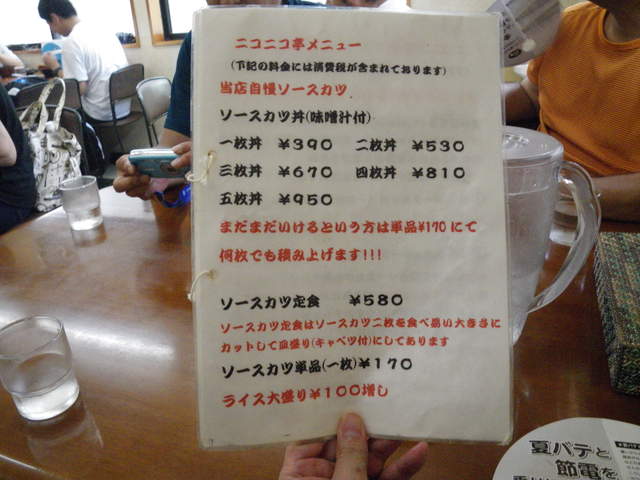 ニコニコ亭メニュー
(下記の料金には消費税が含まれております)
当店自慢ソースカツ
ソースカツ丼(味噌汁付)
一枚丼 ¥390 二枚丼 ¥530
三枚丼 ¥670 四枚丼 ¥810
五枚丼 ¥950
まだまだいけるという方は単品¥170にて
何枚でも積み上げます!!!
ソースカツ定食 ¥580
ソースカツ定食はソースカツ二枚を食べ易い大きさに
カットして皿盛り(キャベツ付)にしてあります
ソースカツ単品(一枚)¥170
ライス大盛り¥100増し
夏バテと
節電を